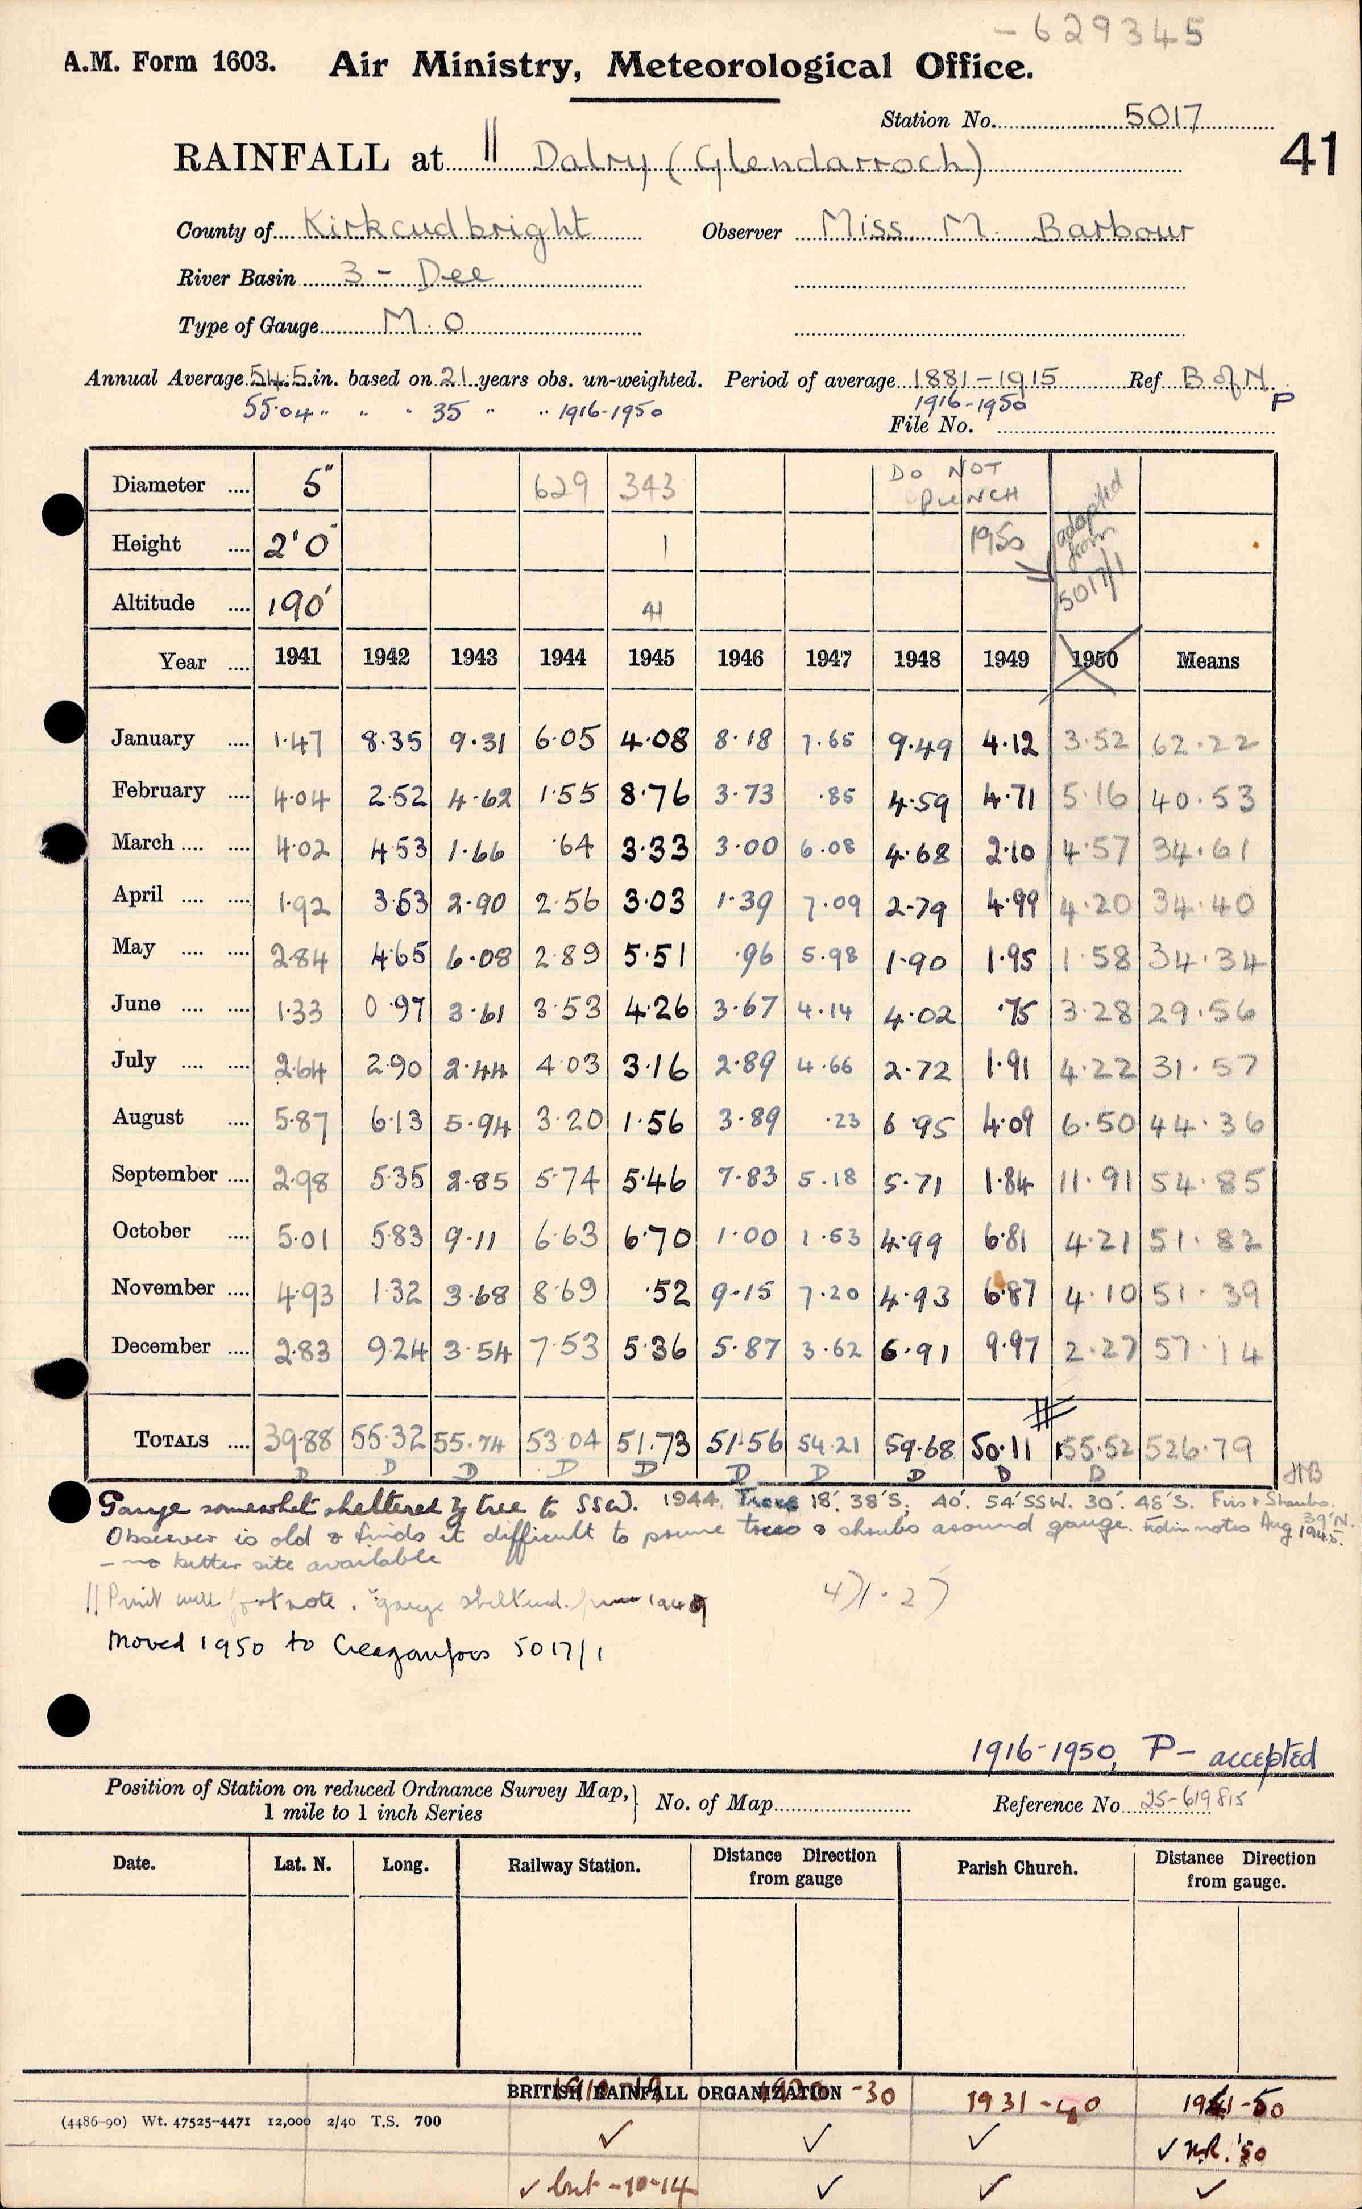 -629345
A.M. Form 1603. Air Ministry, Meteorological Office.
Station No. 5017
41
RAINFALL at || Dalry (Glendarroch)
County of Kirkcudbright Observer Miss. M. Barbour
River Basin 3 - Dee
Type of Gauge M.O
Annual Average 54.5 in. based on 21 years obs. un-weighted. Period of average 1881-1915 Ref B of N P
55.04 " " " 35 " " 1916-1950 1916-1950
File No.
Diameter .... 5" 629 343 DO NOT PUNCH
Height .... 2'0" 1 1950 adopted from 5017/1
Altitude .... 190' 41
Year .... 1941 1942 1943 1944 1945 1946 1947 1948 1949 1950 Means
January .... 1.47 8.35 9.31 6.05 4.08 8.18 7.65 9.49 4.12 3.52 62.22
February .... 4.04 2.52 4.62 1.55 8.76 3.73 .85 4.59 4.71 5.16 40.53
March .... .... 4.02 4.53 1.66 .64 3.33 3.00 6.08 4.68 2.10 4.57 34.61
April .... .... 1.92 3.53 2.90 2.56 3.03 1.39 7.09 2.79 4.99 4.20 34.40
May .... .... 2.84 4.65 6.08 2.89 5.51 .96 5.98 1.90 1.95 1.58 34.34
June .... .... 1.33 0.97 3.61 3.53 4.26 3.67 4.14 4.02 .75 3.28 29.56
July .... .... 2.64 2.90 2.44 4.03 3.16 2.89 4.66 2.72 1.91 4.22 31.57
August .... 5.87 6.13 5.94 3.20 1.56 3.89 .23 6.95 4.09 6.50 44.36
September .... 2.98 5.35 2.85 5.74 5.46 7.83 5.18 5.71 1.84 11.91 54.85
October .... 5.01 5.83 9.11 6.63 6.70 1.00 1.53 4.99 6.81 4.21 51.82
November .... 4.93 1.32 3.68 8.69 .52 9.15 7.20 4.93 6.87 4.10 51.39
December .... 2.83 9.24 3.54 7.53 5.36 5.87 3.62 6.91 9.97 2.27 57.14
TOTALS .... 39.88 55.32 55.74 53.04 51.73 51.56 54.21 59.68 50.11 55.52 526.79
D D D D D D D D D D
Gauge somewhat sheltered by tree to SSW. 1944 Trees 18'. 38'S; 40'. 54'SSW. 30'. 48'S. Firs & Shrubs 39'N.
Observer is old & finds it difficult to prune trees & shrubs around gauge. Edin notes Aug 1945.
- no better site available
|| Print with footnote. "gauge sheltered from 1949
471.27
Moved 1950 to 5017/1
1916-1950, P - accepted
Position of Station on reduced Ordnance Survey Map, 1 mile to 1 inch Series } No. of Map Reference No 25-619815
Date. Lat. N. Long. Railway Station. Distance Direction from gauge Parish Church. Distance Direction from gauge.
BRITISH RAINFALL ORGANIZATION -30 1931-40 1941-50
(4486-90) Wt. 47525-4471 12,000 2/40 T.S. 700
✓ ✓ ✓ ✓ '50
✓ but -10-14 ✓ ✓ ✓